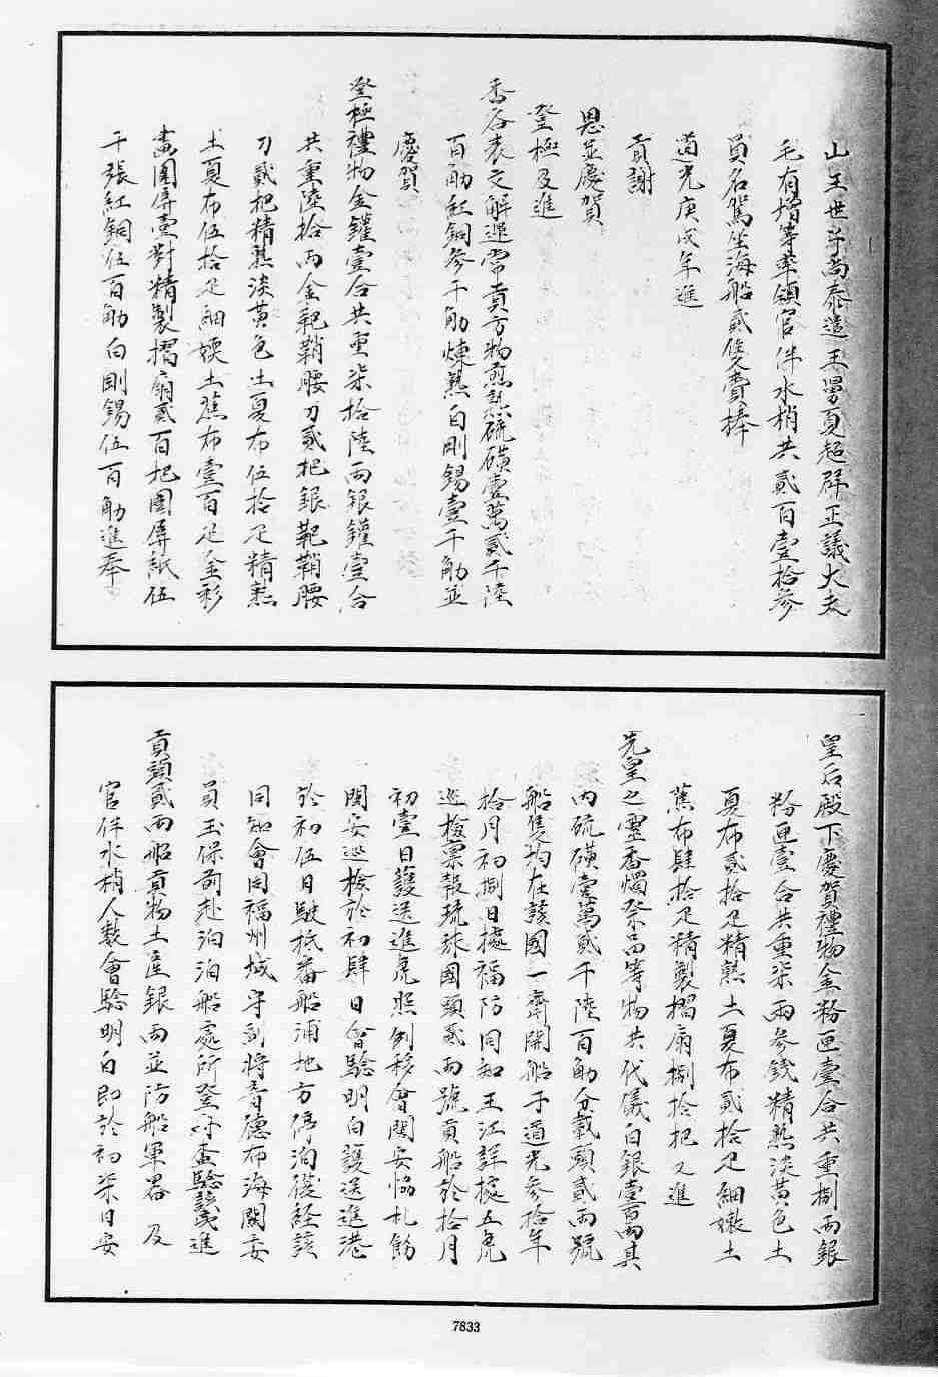 山王世子尚泰遣王舅夏超群正議大夫
毛有增等率領官伴水梢共貳百壹拾參
員名駕坐海船貳隻賫捧
道光庚戌年進
貢謝
恩並慶賀
登極及進
香咨表文解運常貢方物煎熟硫磺壹萬貳千陸
百觔紅銅參千觔煉熟白剛錫壹千觔並
慶賀
登極禮物金鑵壹合共重柒拾陸兩銀鑵壹合
共重陸拾兩金靶鞘腰刀貳把銀靶鞘腰
刀貳把精熟淡黃色土夏布伍拾疋精熟
土夏布伍拾疋細嫩土蕉布壹百疋金彩
畫圍屏壹對精製摺扇貳百把圍屏紙伍
千張紅銅伍百觔白剛錫伍百觔進奉
皇后殿下慶賀禮物金粉匣壹合共重捌兩銀
粉匣壹合共重柒兩參錢精熟淡黃色土
夏布貳拾疋精熟土夏布貳拾疋細嫩土
蕉布肆拾疋精製摺扇捌拾把又進
先皇之靈香燭祭品等物共代儀白銀壹百兩其
內硫磺壹萬貳千陸百觔分載頭貳兩號
船隻均在該國一齊開船于道光參拾年
拾月初捌日據福防同知王江詳據五虎
巡檢稟報琉球國頭貳兩號貢船於拾月
初壹日護送進虎照例移會閩安協札飭
閩安巡檢於初肆日會驗明白護送進港
於初伍日駛抵番船浦地方停泊礙經該
同知會同福州城守副將音德布海關委
員玉保前赴泊船處所登舟查驗該進
貢頭貳兩船貢物土產銀兩並防船軍器及
官伴水梢人數會驗明白即於初柒日安
7833